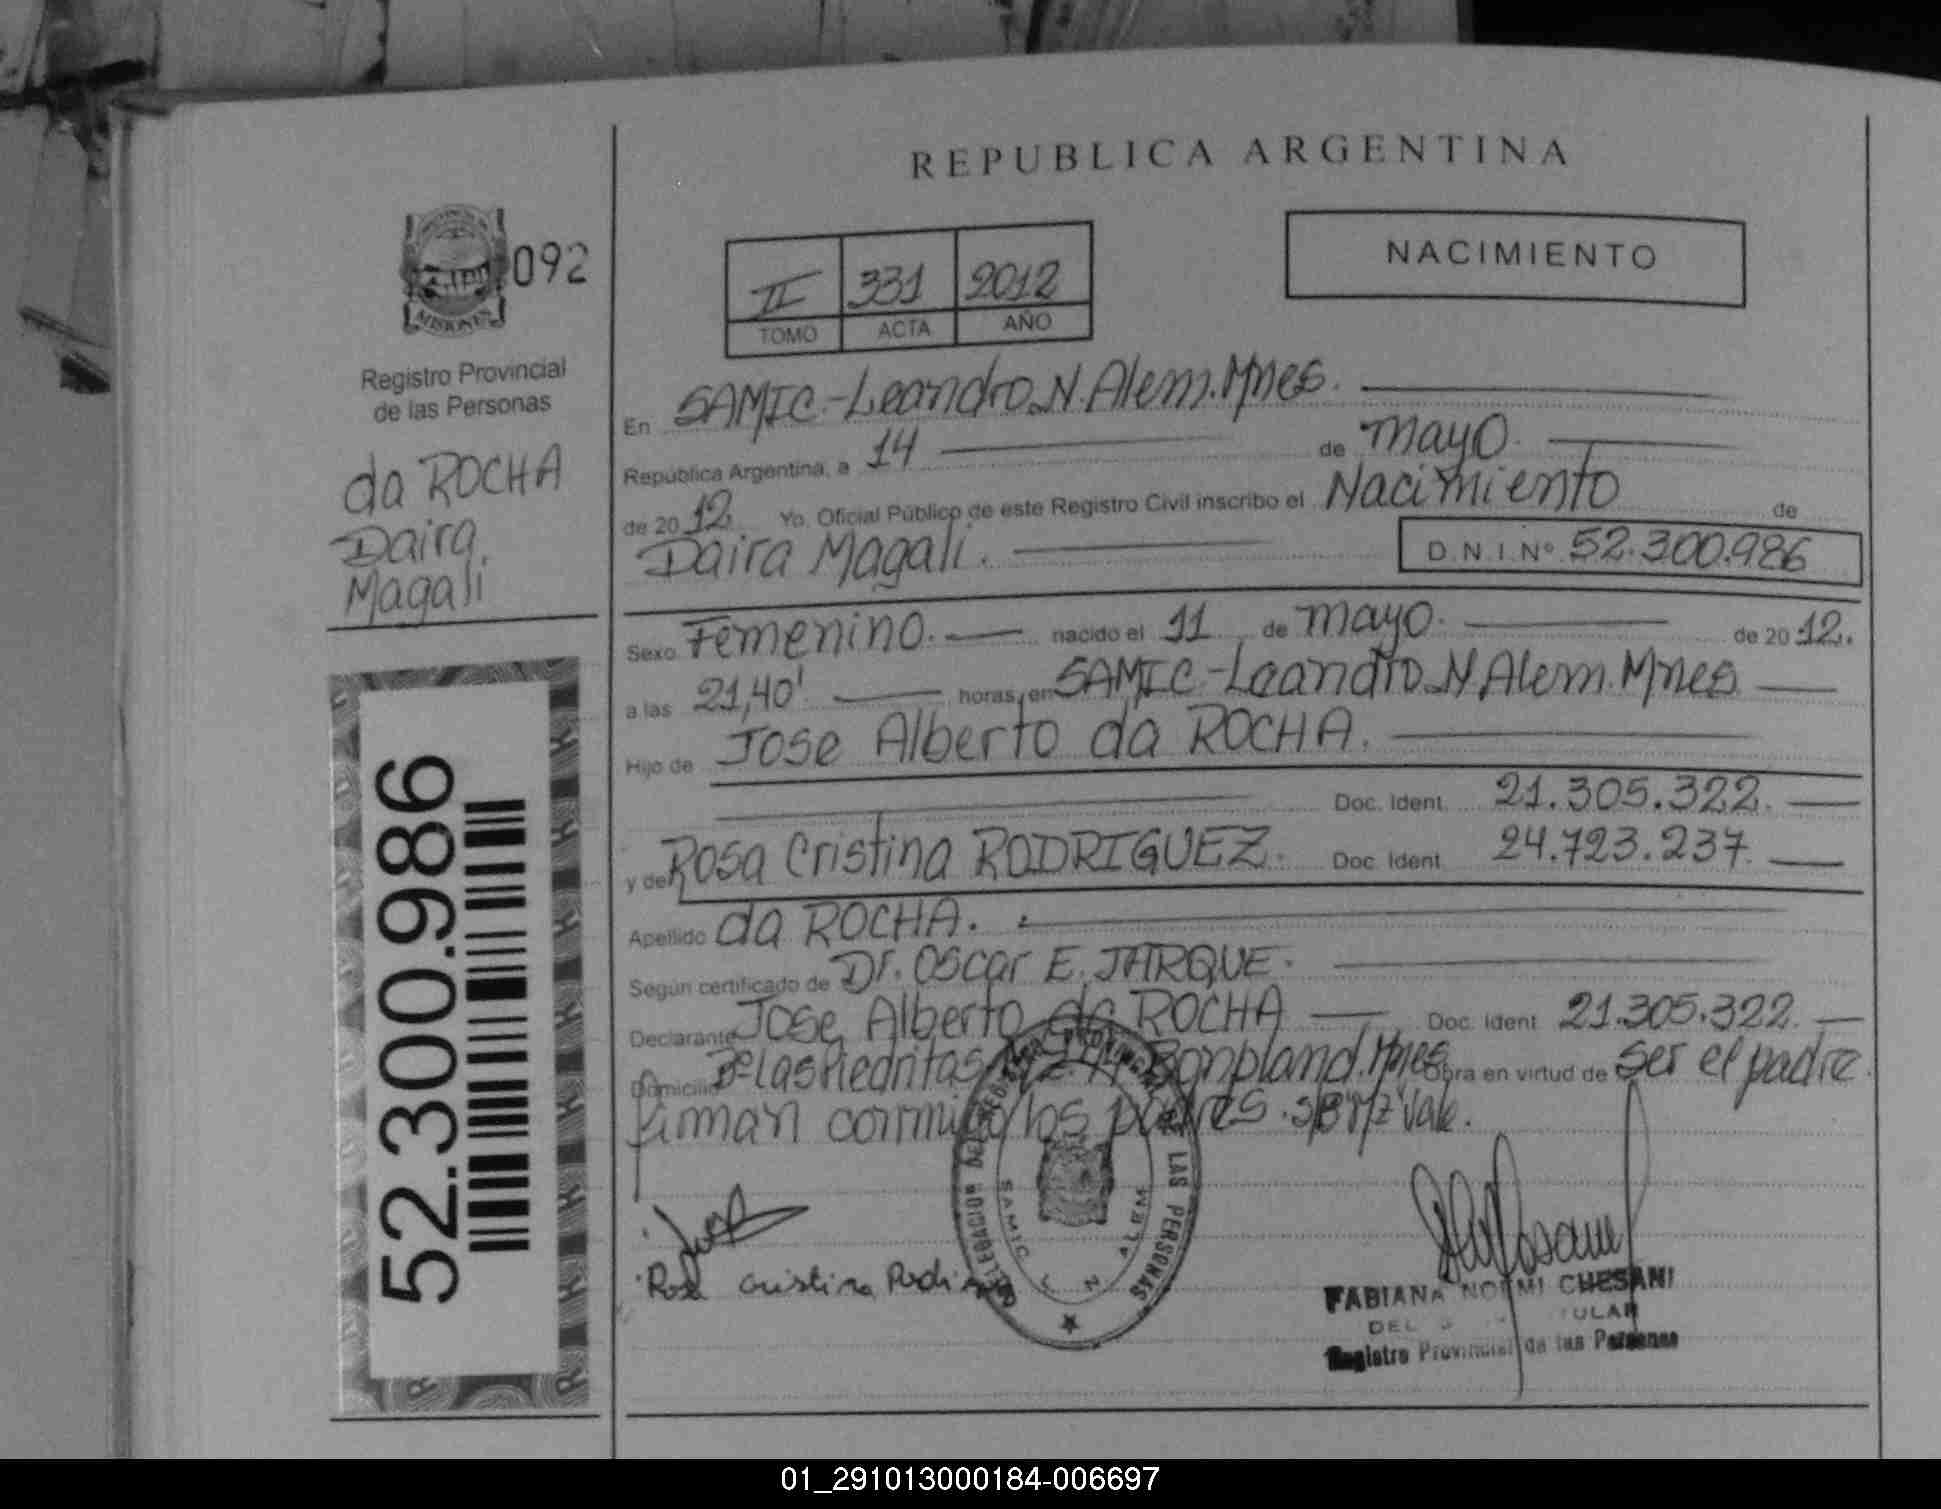 REPUBLICA ARGENTINA
092
MISIONES
Registro Provincial
de las Personas
da ROCHA
Daira
Magali
52.300.986
II 331 2012
TOMO ACTA AÑO
NACIMIENTO
En SAMIC-Leandro N. Alem. Mnes.
República Argentina, a 14 de mayo.
de 20 12 Yo, Oficial Público de este Registro Civil inscribo el Nacimiento de
Daira Magali. D.N.I.Nº 52.300.986
Sexo Femenino. nacido el 11 de mayo. de 20 12.
a las 21,40' horas, en SAMIC-Leandro N. Alem. Mnes
Hijo de Jose Alberto da ROCHA.
Doc. Ident. 21.305.322.
y de Rosa Cristina RODRIGUEZ. Doc. Ident. 24.723.237.
Apellido da ROCHA.
Según certificado de Dr. Oscar E. JARQUE.
Declarante Jose Alberto da ROCHA Doc. Ident. 21.305.322.
Domicilio Bº las Piedritas Bonpland. Mnes Obra en virtud de ser el padre
firman conmigo los padres. Vale.
Rosa cristina
DELEGACION DEL REGISTRO PROVINCIAL DE LAS PERSONAS
SAMIC L N ALEM
FABIANA NOEMI CHESANI
Registro Provincial de las Personas
01_291013000184-006697